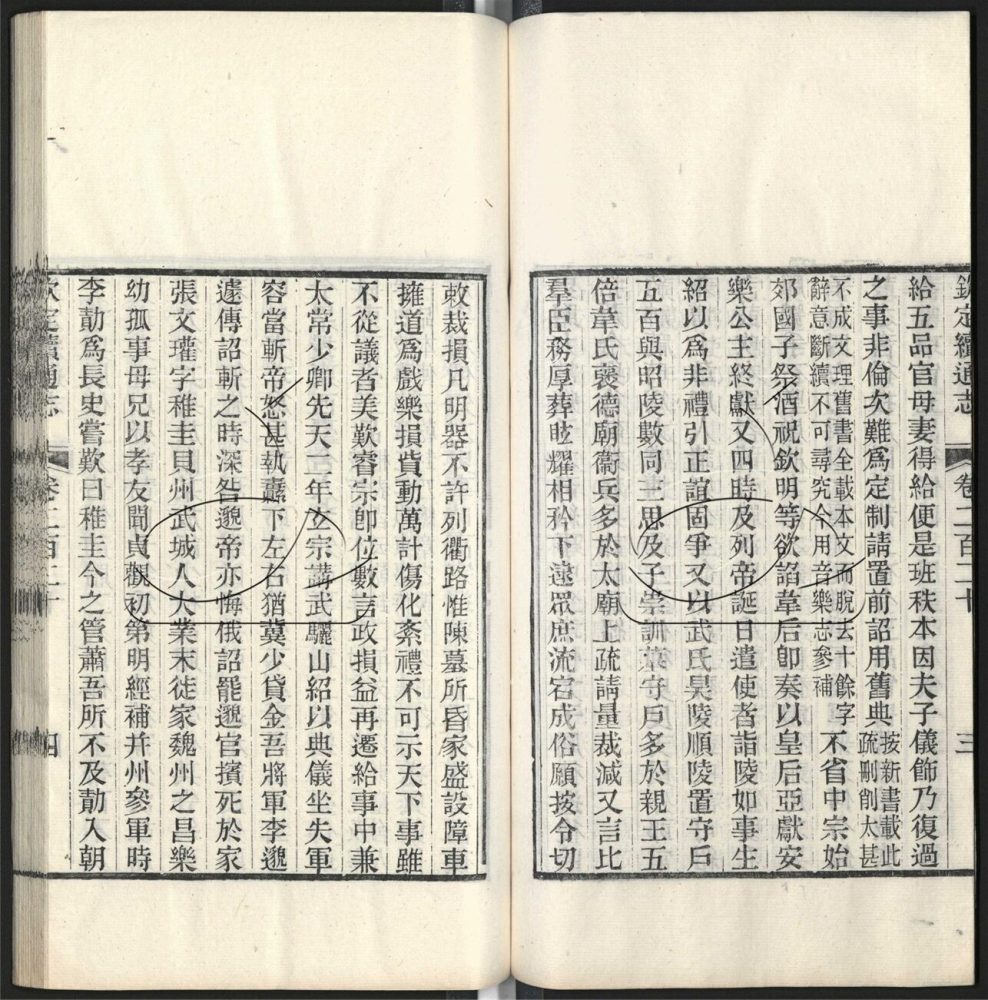 欽定續通志 卷二百二十 三
給五品官母妻得給便是班秩本因夫子儀飾乃復過
之事非倫次難爲定制請置前詔用舊典按新書載此疏刪削太甚
不成文理舊書全載本文而脫去十餘字辭意斷續不可尋究今用音樂志參補不省中宗始
郊國子祭酒祝欽明等欲諂韋后卽奏以皇后亞獻安
樂公主終獻又四時及列帝誕日遣使者詣陵如事生
紹以爲非禮引正誼固爭又以武氏昊陵順陵置守戸
五百與昭陵數同三思及子崇訓墓守戸多於親王五
倍韋氏襃德廟衞兵多於太廟上疏請量裁減又言比
羣臣務厚葬眩耀相矜下逮眾庶流宕成俗願按令切
敕裁損凡明器不許列衢路惟陳墓所昏家盛設障車
擁道爲戲樂損貲動萬計傷化紊禮不可示天下事雖
不從議者美歎睿宗卽位數言政損益再遷給事中兼
太常少卿先天二年立宗講武驪山紹以典儀坐失軍
容當斬帝怒甚執纛下左右猶冀少貸金吾將軍李邈
遽傳詔斬之時深咎邈帝亦悔俄詔罷邈官擯死於家
張文瓘字稚圭貝州武城人大業末徙家魏州之昌樂
幼孤事母兄以孝友聞貞觀初第明經補并州參軍時
李勣爲長史嘗歎曰稚圭今之管蕭吾所不及勣入朝
欽定續通志 卷二百二十 四